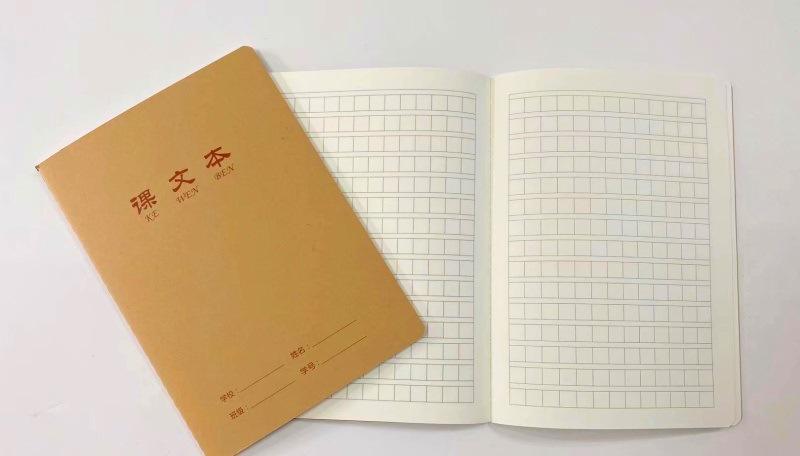 课文本
KE WEN BEN
学校： 姓名：
班级： 学号：